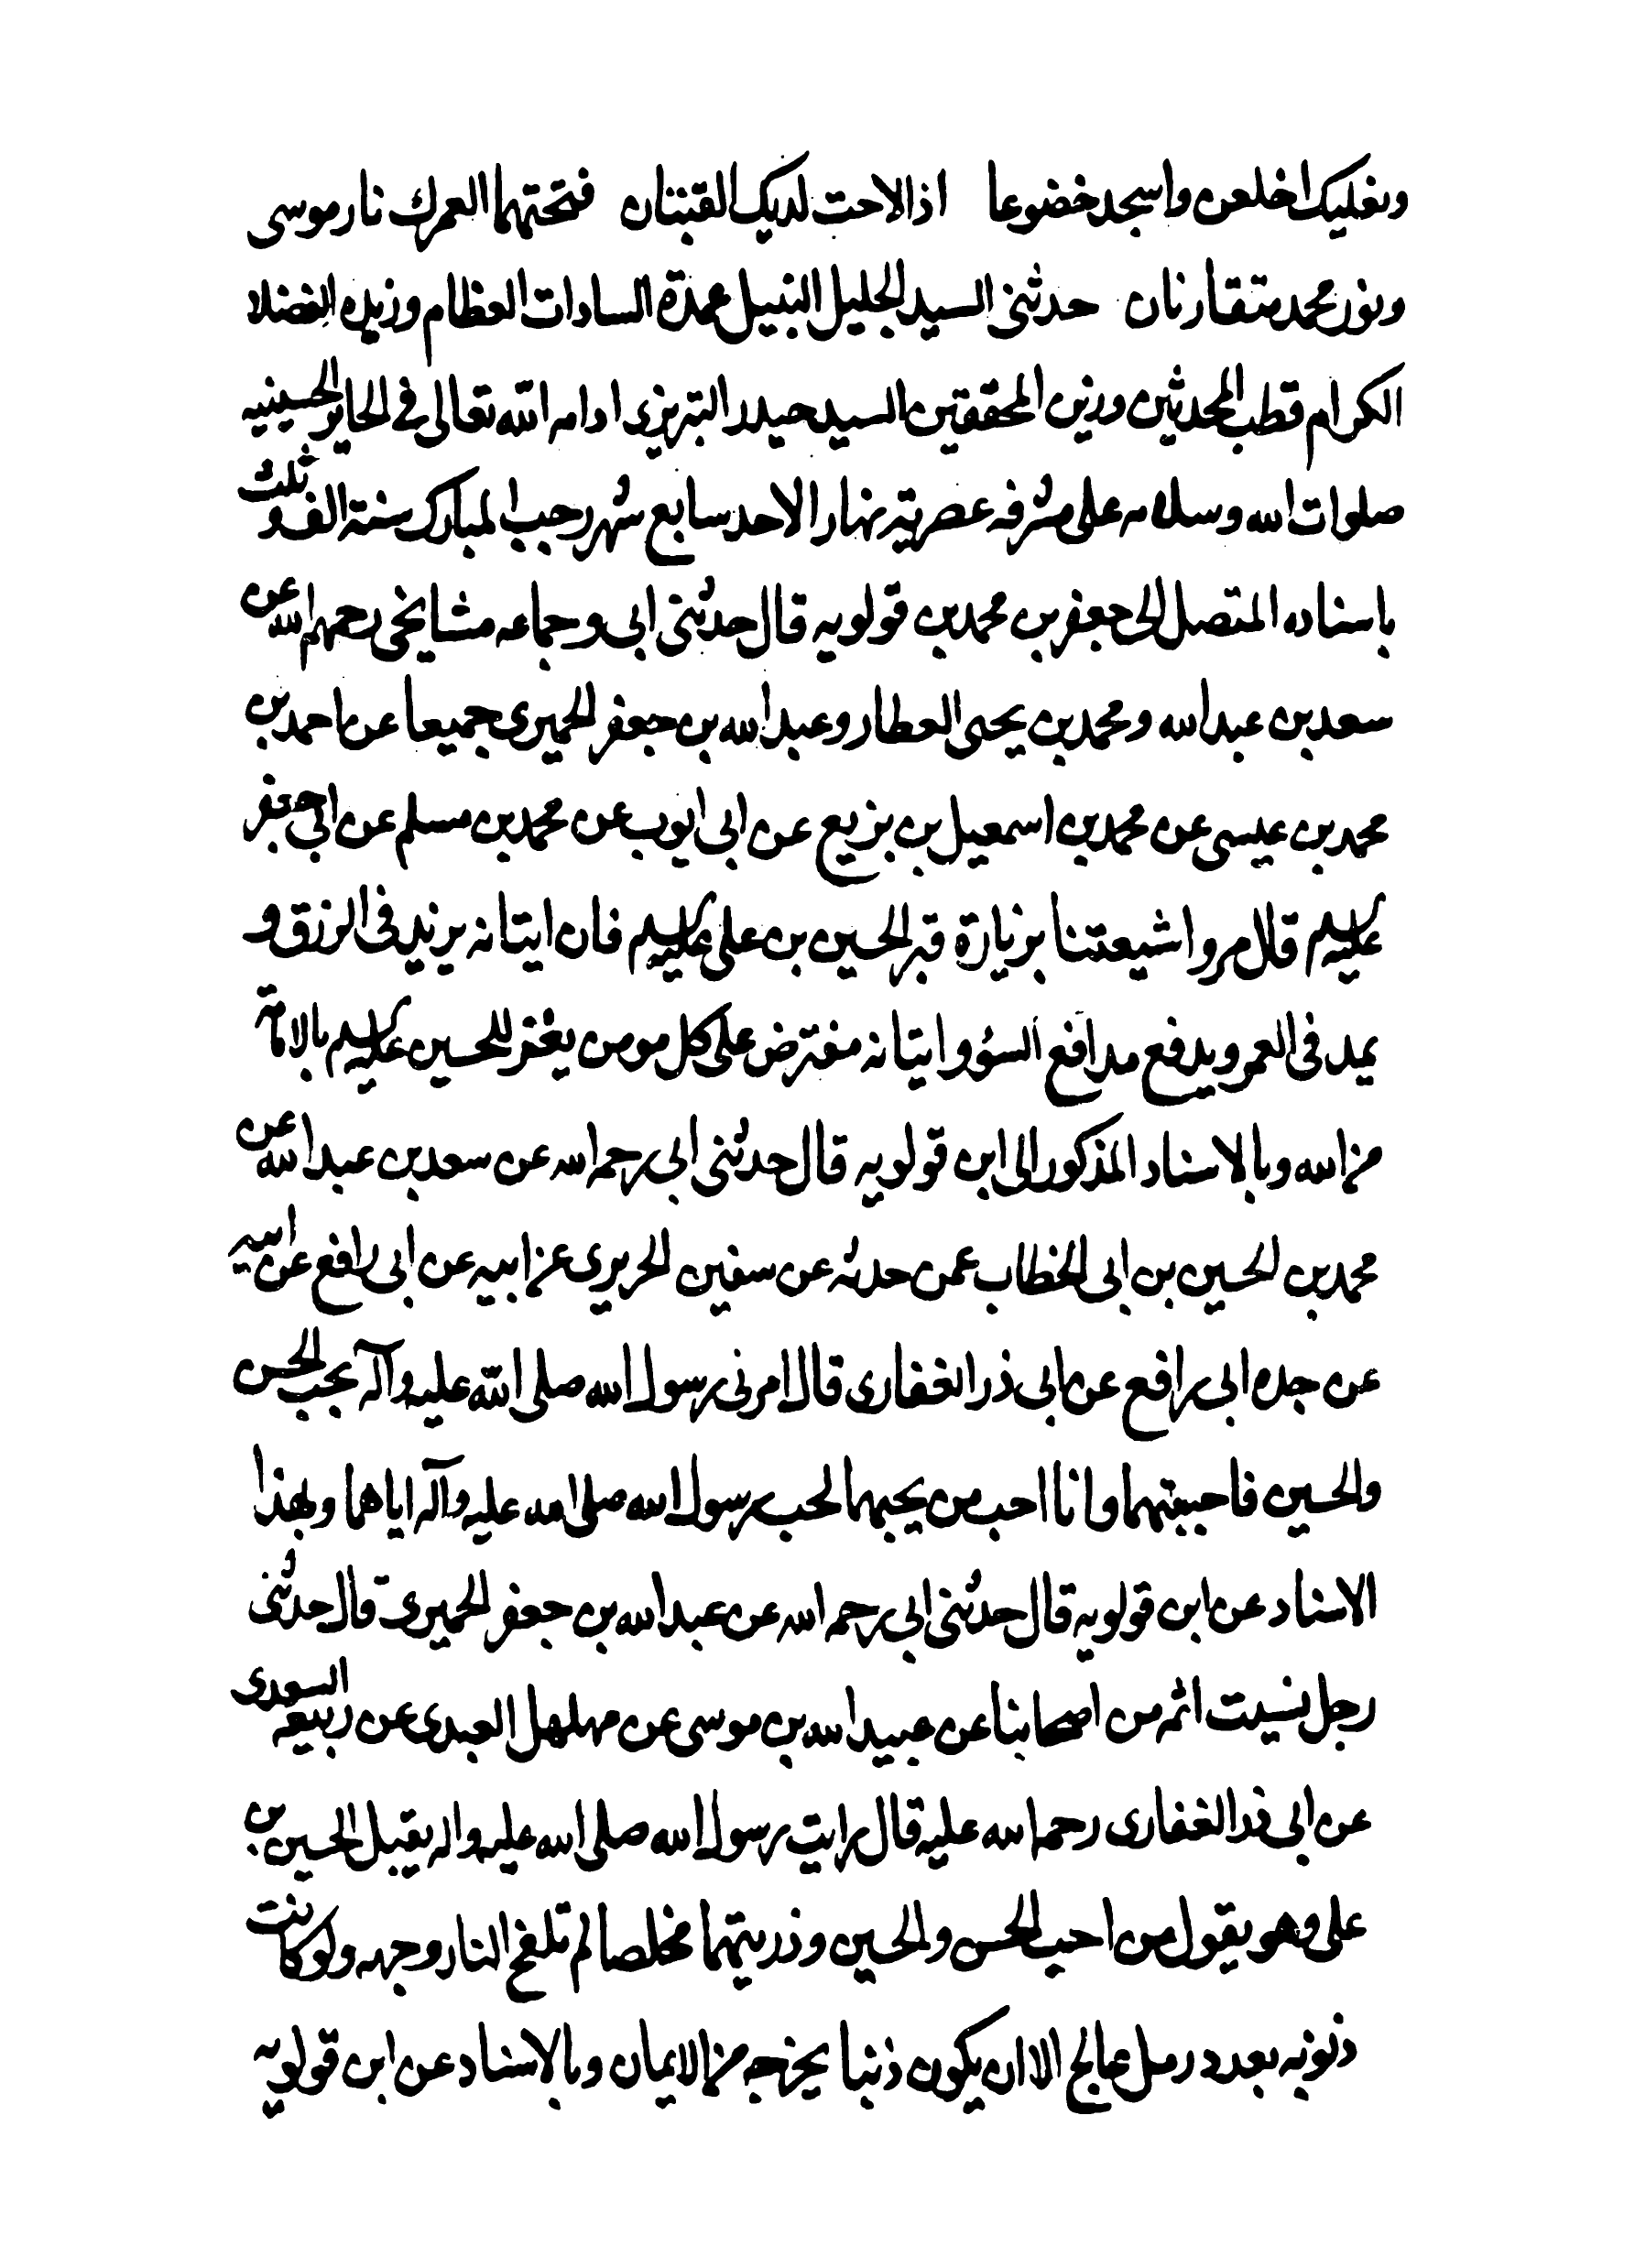 ونعليك اخلعن واسجد خضوعا اذا لاحت لديك القبتان فتحتهما لعمرك نار موسى
ونور محمد متقارنان حدثنى السيد الجليل النبيل عمدة السادات العظام وزبده الفضلا
الكرام قطب المحدثين وزين المحققين السيد حيدر التبريزى ادامه الله تعالى فى الحاير الحسينيه
صلوات الله وسلامه على مشرفه عصرية نهار الاحد سابع شهر رجب المبارك سنة الف و ثلث
باسناده المتصل الى جعفر بن محمد بن قولويه قال حدثنى ابى وجماعه مشايخى رحمهم الله عن
سعد بن عبد الله ومحمد بن يحيى العطار وعبد الله بن جعفر الحميرى جميعا عن احمد بن
محمد بن عيسى عن محمد بن اسمعيل بن بزيع عن ابى ايوب عن محمد بن مسلم عن ابى جعفر
عليه السلم قال مروا شيعتنا بزيارة قبر الحسين بن على عليه السلم فان اتيانه يزيد فى الرزق و
يمد فى العمر ويدفع مدافع السؤ واتيانه مفترض على كل مومن يقر للحسين عليه السلم بالامامة
من الله وبالاسناد المذكور الى ابن قولويه قال حدثنى ابى رحمه الله عن سعد بن عبد الله عن
محمد بن الحسين بن ابى الخطاب عمن حدثه عن سفين الحريرى عن ابيه عن ابى رافع عن ابيه
عن جده ابى رافع عن ابى ذر الغفارى قال امرنى رسول الله صلى الله عليه وآله بحب الحسن
والحسين فاحببتهما وانا احب من يحبهما لحب رسول الله صلى الله عليه وآله اياهما وبهذا
الاسناد عن ابن قولويه قال حدثنى ابى رحمه الله عن عبد الله بن جعفر الحميرى قال حدثنى
رجل نسيت اسمه من اصحابنا عن عبيد الله بن موسى عن مهلهل العبدى عن ربيعه السعدى
عن ابى ذر الغفارى رحمه الله عليه قال رايت رسول الله صلى الله عليه واله يقبل الحسين بن
على وهو يقول من احب الحسن والحسين وذريتهما مخلصا لم تلفح النار وجهه ولو كانت
ذنوبه بعدد رمل عالج الا ان يكون ذنبا يخرجه من الايمان وبالاسناد عن ابن قولويه